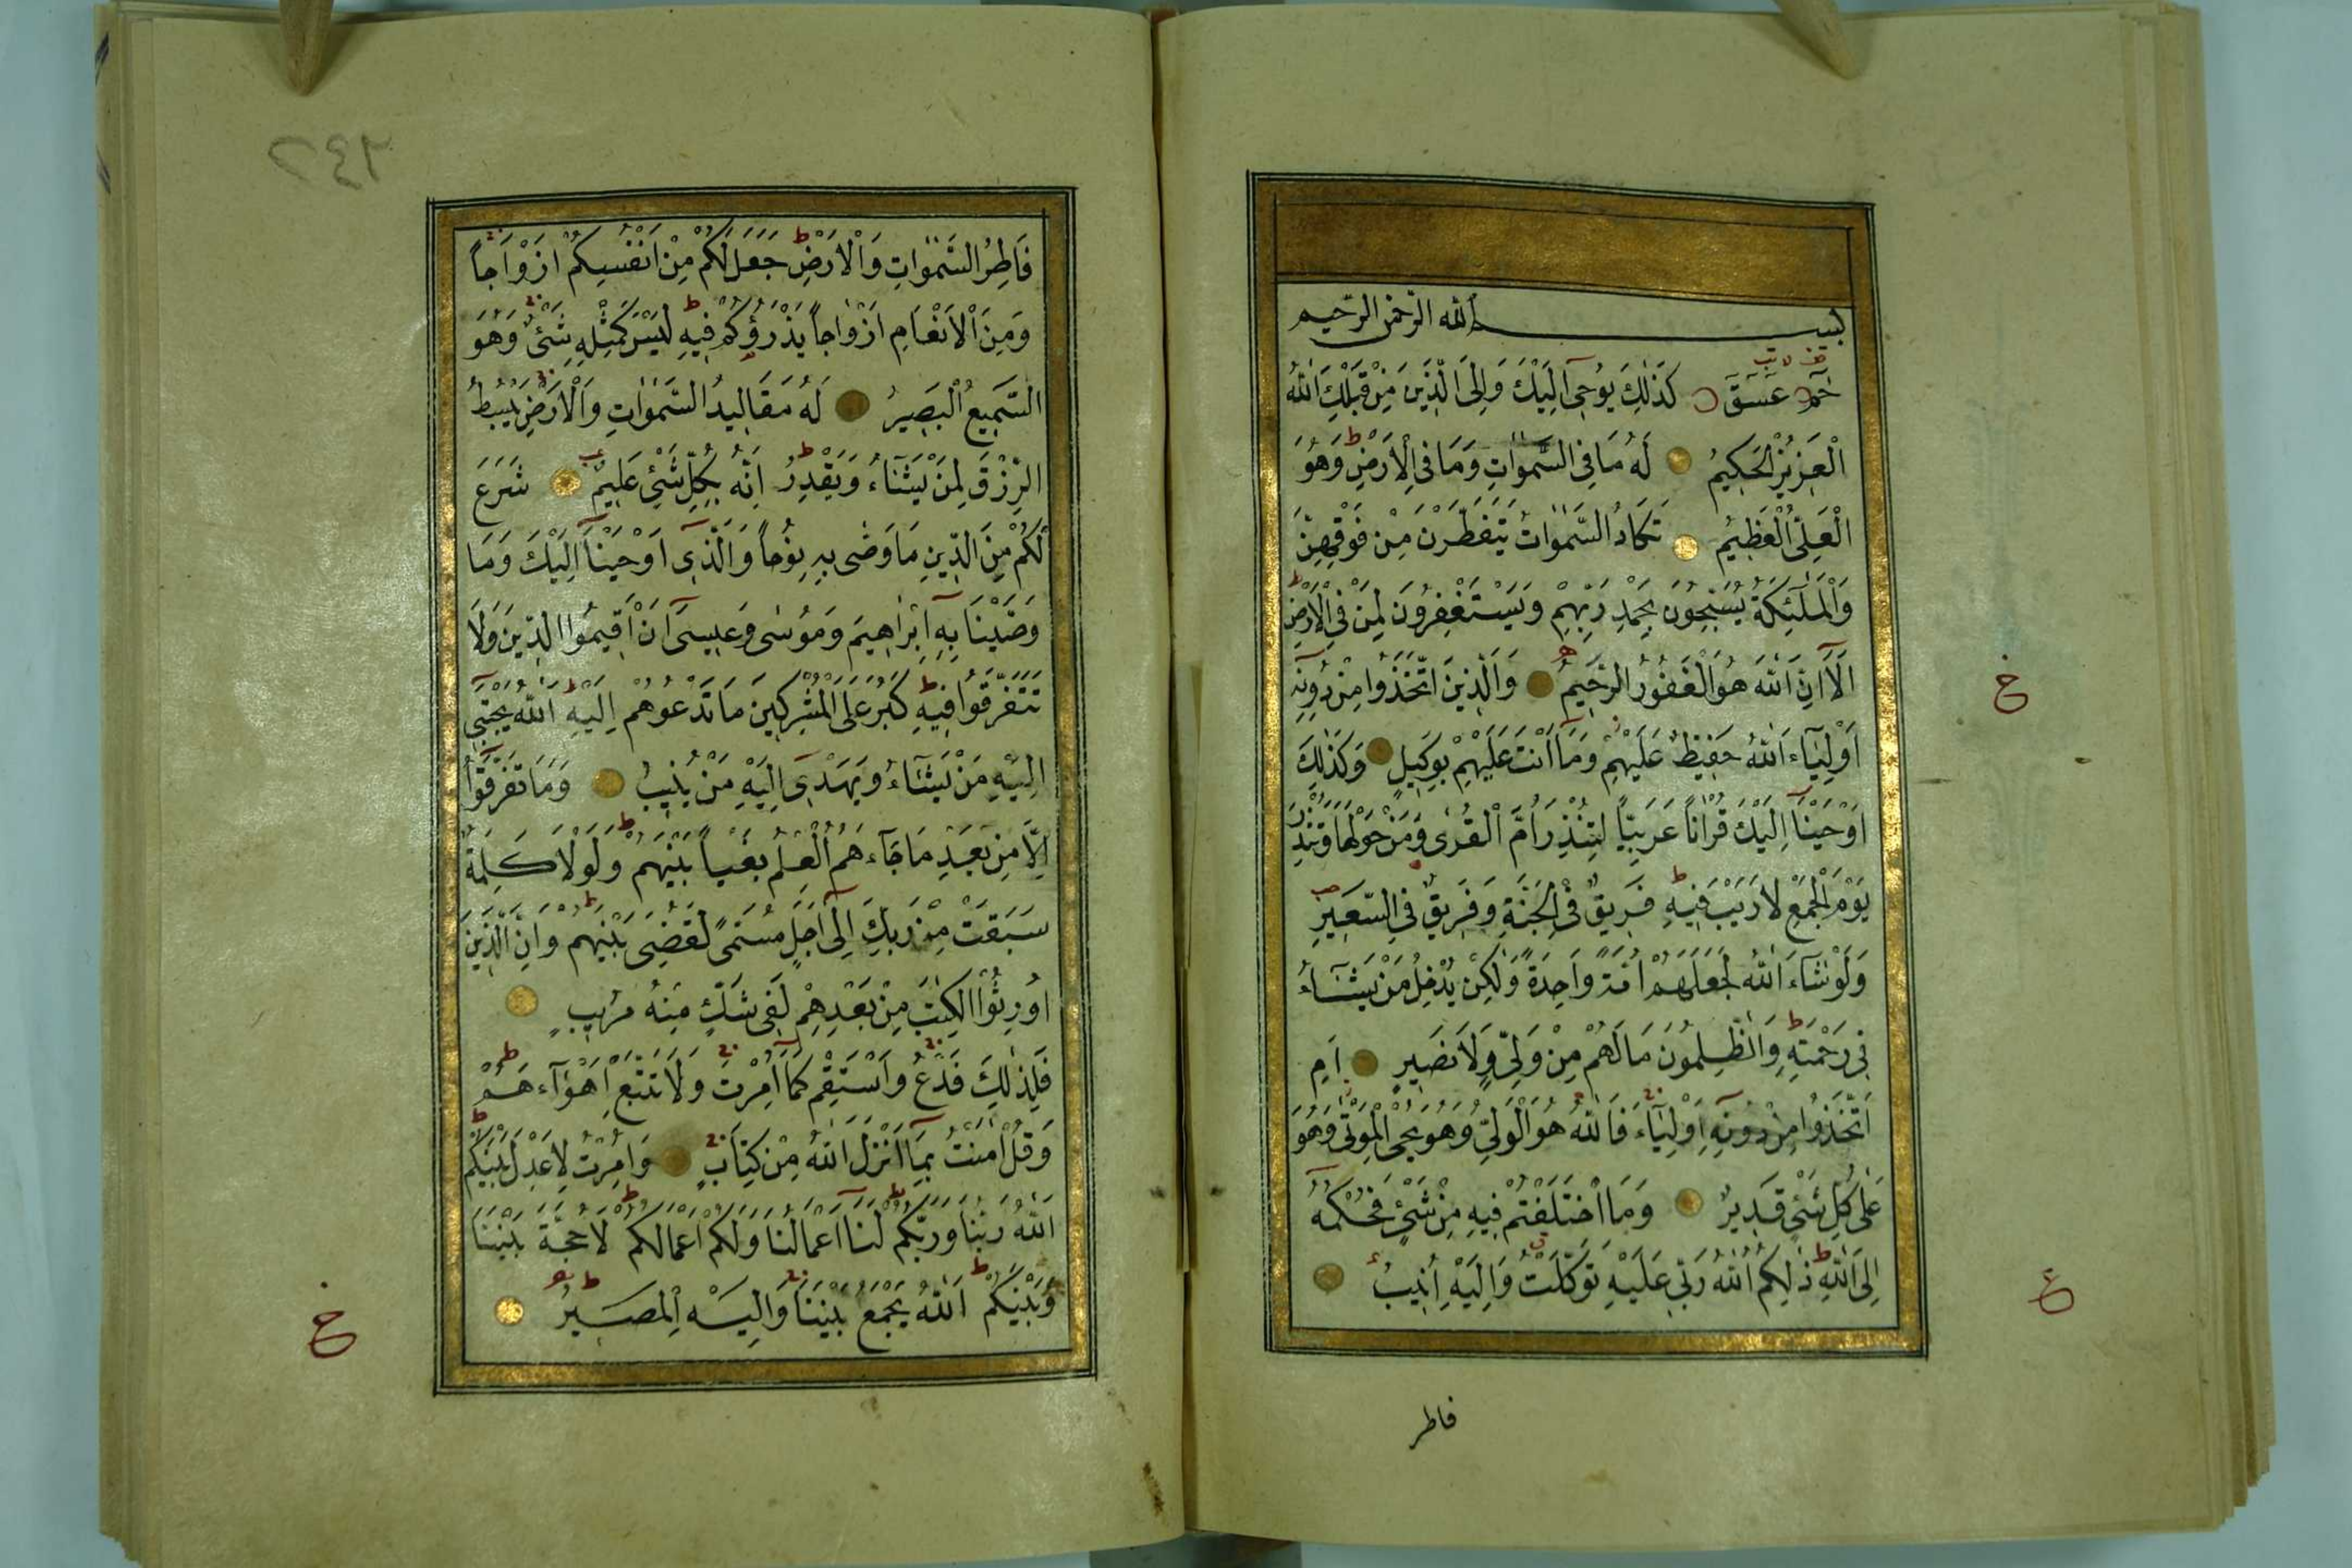 بِسْمِ اللّٰهِ الرَّحْمٰنِ الرَّحِيمِ
حٰمٓ عٓسٓقٓ كَذٰلِكَ يُوحٖٓى اِلَيْكَ وَاِلَى الَّذٖينَ مِنْ قَبْلِكَ اللّٰهُ
الْعَزٖيزُ الْحَكٖيمُ لَهُ مَا فِى السَّمٰوَاتِ وَمَا فِى الْاَرْضِ وَهُوَ
الْعَلِىُّ الْعَظٖيمُ تَكَادُ السَّمٰوَاتُ يَتَفَطَّرْنَ مِنْ فَوْقِهِنَّ
وَالْمَلٰٓئِكَةُ يُسَبِّحُونَ بِحَمْدِ رَبِّهِمْ وَيَسْتَغْفِرُونَ لِمَنْ فِى الْاَرْضِ
اَلَٓا اِنَّ اللّٰهَ هُوَ الْغَفُورُ الرَّحٖيمُ وَالَّذٖينَ اتَّخَذُوا مِنْ دُونِهٖٓ
اَوْلِيَٓاءَ اللّٰهُ حَفٖيظٌ عَلَيْهِمْ وَمَٓا اَنْتَ عَلَيْهِمْ بِوَكٖيلٍ وَكَذٰلِكَ
اَوْحَيْنَٓا اِلَيْكَ قُرْاٰنًا عَرَبِيًّا لِتُنْذِرَ اُمَّ الْقُرٰى وَمَنْ حَوْلَهَا وَتُنْذِرَ
يَوْمَ الْجَمْعِ لَا رَيْبَ فٖيهِ فَرٖيقٌ فِى الْجَنَّةِ وَفَرٖيقٌ فِى السَّعٖيرِ
وَلَوْ شَٓاءَ اللّٰهُ لَجَعَلَهُمْ اُمَّةً وَاحِدَةً وَلٰكِنْ يُدْخِلُ مَنْ يَشَٓاءُ
فٖى رَحْمَتِهٖ وَالظّٰلِمُونَ مَا لَهُمْ مِنْ وَلِىٍّ وَلَا نَصٖيرٍ اَمِ
اتَّخَذُوا مِنْ دُونِهٖٓ اَوْلِيَٓاءَ فَاللّٰهُ هُوَ الْوَلِىُّ وَهُوَ يُحْيِى الْمَوْتٰى وَهُوَ
عَلٰى كُلِّ شَىْءٍ قَدٖيرٌ وَمَا اخْتَلَفْتُمْ فٖيهِ مِنْ شَىْءٍ فَحُكْمُهُٓ
اِلَى اللّٰهِ ذٰلِكُمُ اللّٰهُ رَبّٖى عَلَيْهِ تَوَكَّلْتُ وَاِلَيْهِ اُنٖيبُ
فاطر
٦٤٢
فَاطِرُ السَّمٰوَاتِ وَالْاَرْضِ جَعَلَ لَكُمْ مِنْ اَنْفُسِكُمْ اَزْوَاجًا
وَمِنَ الْاَنْعَامِ اَزْوَاجًا يَذْرَؤُكُمْ فٖيهِ لَيْسَ كَمِثْلِهٖ شَىْءٌ وَهُوَ
السَّمٖيعُ الْبَصٖيرُ لَهُ مَقَالٖيدُ السَّمٰوَاتِ وَالْاَرْضِ يَبْسُطُ
الرِّزْقَ لِمَنْ يَشَٓاءُ وَيَقْدِرُ اِنَّهُ بِكُلِّ شَىْءٍ عَلٖيمٌ شَرَعَ
لَكُمْ مِنَ الدّٖينِ مَا وَصّٰى بِهٖ نُوحًا وَالَّذٖٓى اَوْحَيْنَٓا اِلَيْكَ وَمَا
وَصَّيْنَا بِهٖٓ اِبْرٰهٖيمَ وَمُوسٰى وَعٖيسٰٓى اَنْ اَقٖيمُوا الدّٖينَ وَلَا
تَتَفَرَّقُوا فٖيهِ كَبُرَ عَلَى الْمُشْرِكٖينَ مَا تَدْعُوهُمْ اِلَيْهِ اَللّٰهُ يَجْتَبٖٓى
اِلَيْهِ مَنْ يَشَٓاءُ وَيَهْدٖٓى اِلَيْهِ مَنْ يُنٖيبُ وَمَا تَفَرَّقُٓوا
اِلَّا مِنْ بَعْدِ مَا جَٓاءَهُمُ الْعِلْمُ بَغْيًا بَيْنَهُمْ وَلَوْلَا كَلِمَةٌ
سَبَقَتْ مِنْ رَبِّكَ اِلٰٓى اَجَلٍ مُسَمًّى لَقُضِىَ بَيْنَهُمْ وَاِنَّ الَّذٖينَ
اُورِثُوا الْكِتٰبَ مِنْ بَعْدِهِمْ لَفٖى شَكٍّ مِنْهُ مُرٖيبٍ
فَلِذٰلِكَ فَادْعُ وَاسْتَقِمْ كَمَٓا اُمِرْتَ وَلَا تَتَّبِعْ اَهْوَٓاءَهُمْ
وَقُلْ اٰمَنْتُ بِمَٓا اَنْزَلَ اللّٰهُ مِنْ كِتَابٍ وَاُمِرْتُ لِاَعْدِلَ بَيْنَكُمْ
اَللّٰهُ رَبُّنَا وَرَبُّكُمْ لَنَٓا اَعْمَالُنَا وَلَكُمْ اَعْمَالُكُمْ لَا حُجَّةَ بَيْنَنَا
وَبَيْنَكُمْ اَللّٰهُ يَجْمَعُ بَيْنَنَا وَاِلَيْهِ الْمَصٖيرُ